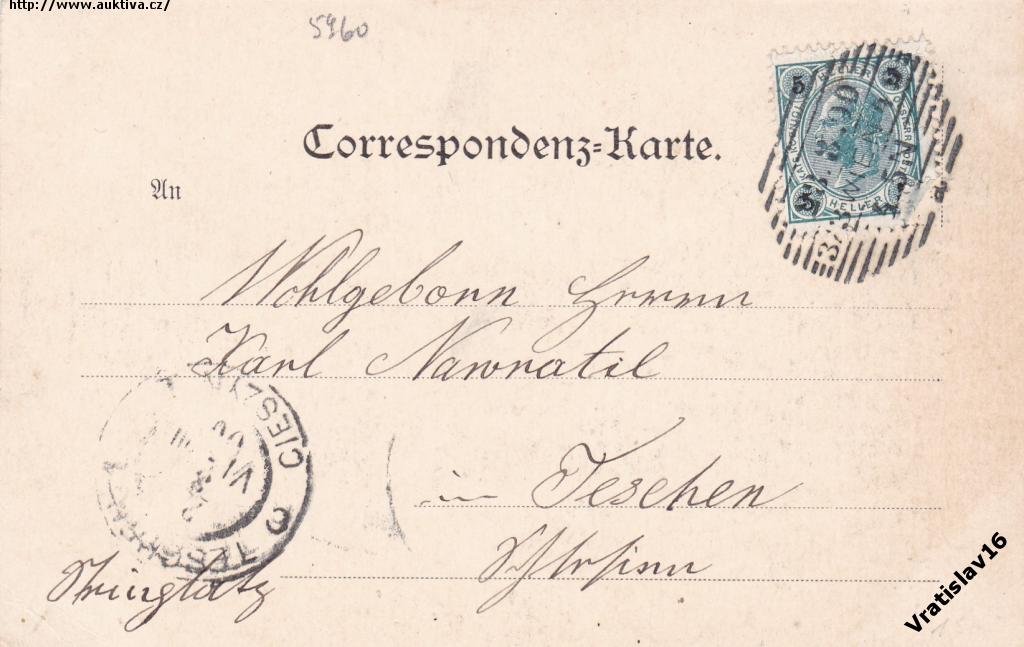 http://www.auktiva.cz/
5960
Correspondenz=Karte.
An
5 HELLER
WIEN
Wohlgeborn Herrn
Karl Nawratil
in Teschen
Schlesien
CIESZYN
TESCHEN
Vratislav16